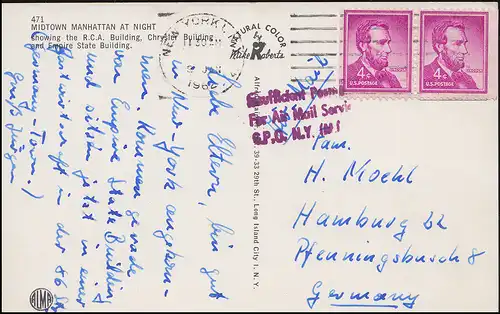 471
MIDTOWN MANHATTAN AT NIGHT
Showing the R.C.A. Building, Chrysler Building
and Empire State Building.
NEW YORK
NATURAL COLOR
Mike Roberts
4¢
U.S. POSTAGE
4¢
U.S. POSTAGE
Insufficient Postage
For Air Mail Service
G.P.O. N.Y.
Liebe Eltern, bin gut
in New-York angekom-
men. Kommen gerade
vom Empire State Building
und sitzen jetzt in einer
Gastwirtschaft in der 86 Str.
(Germany-Town!)
Gruß Jürgen
39-33 29th St., Long Island City 1, N. Y.
Fam.
H. Moehl
Hamburg 22
Pfenningsbusch 8
Germany
ALMA